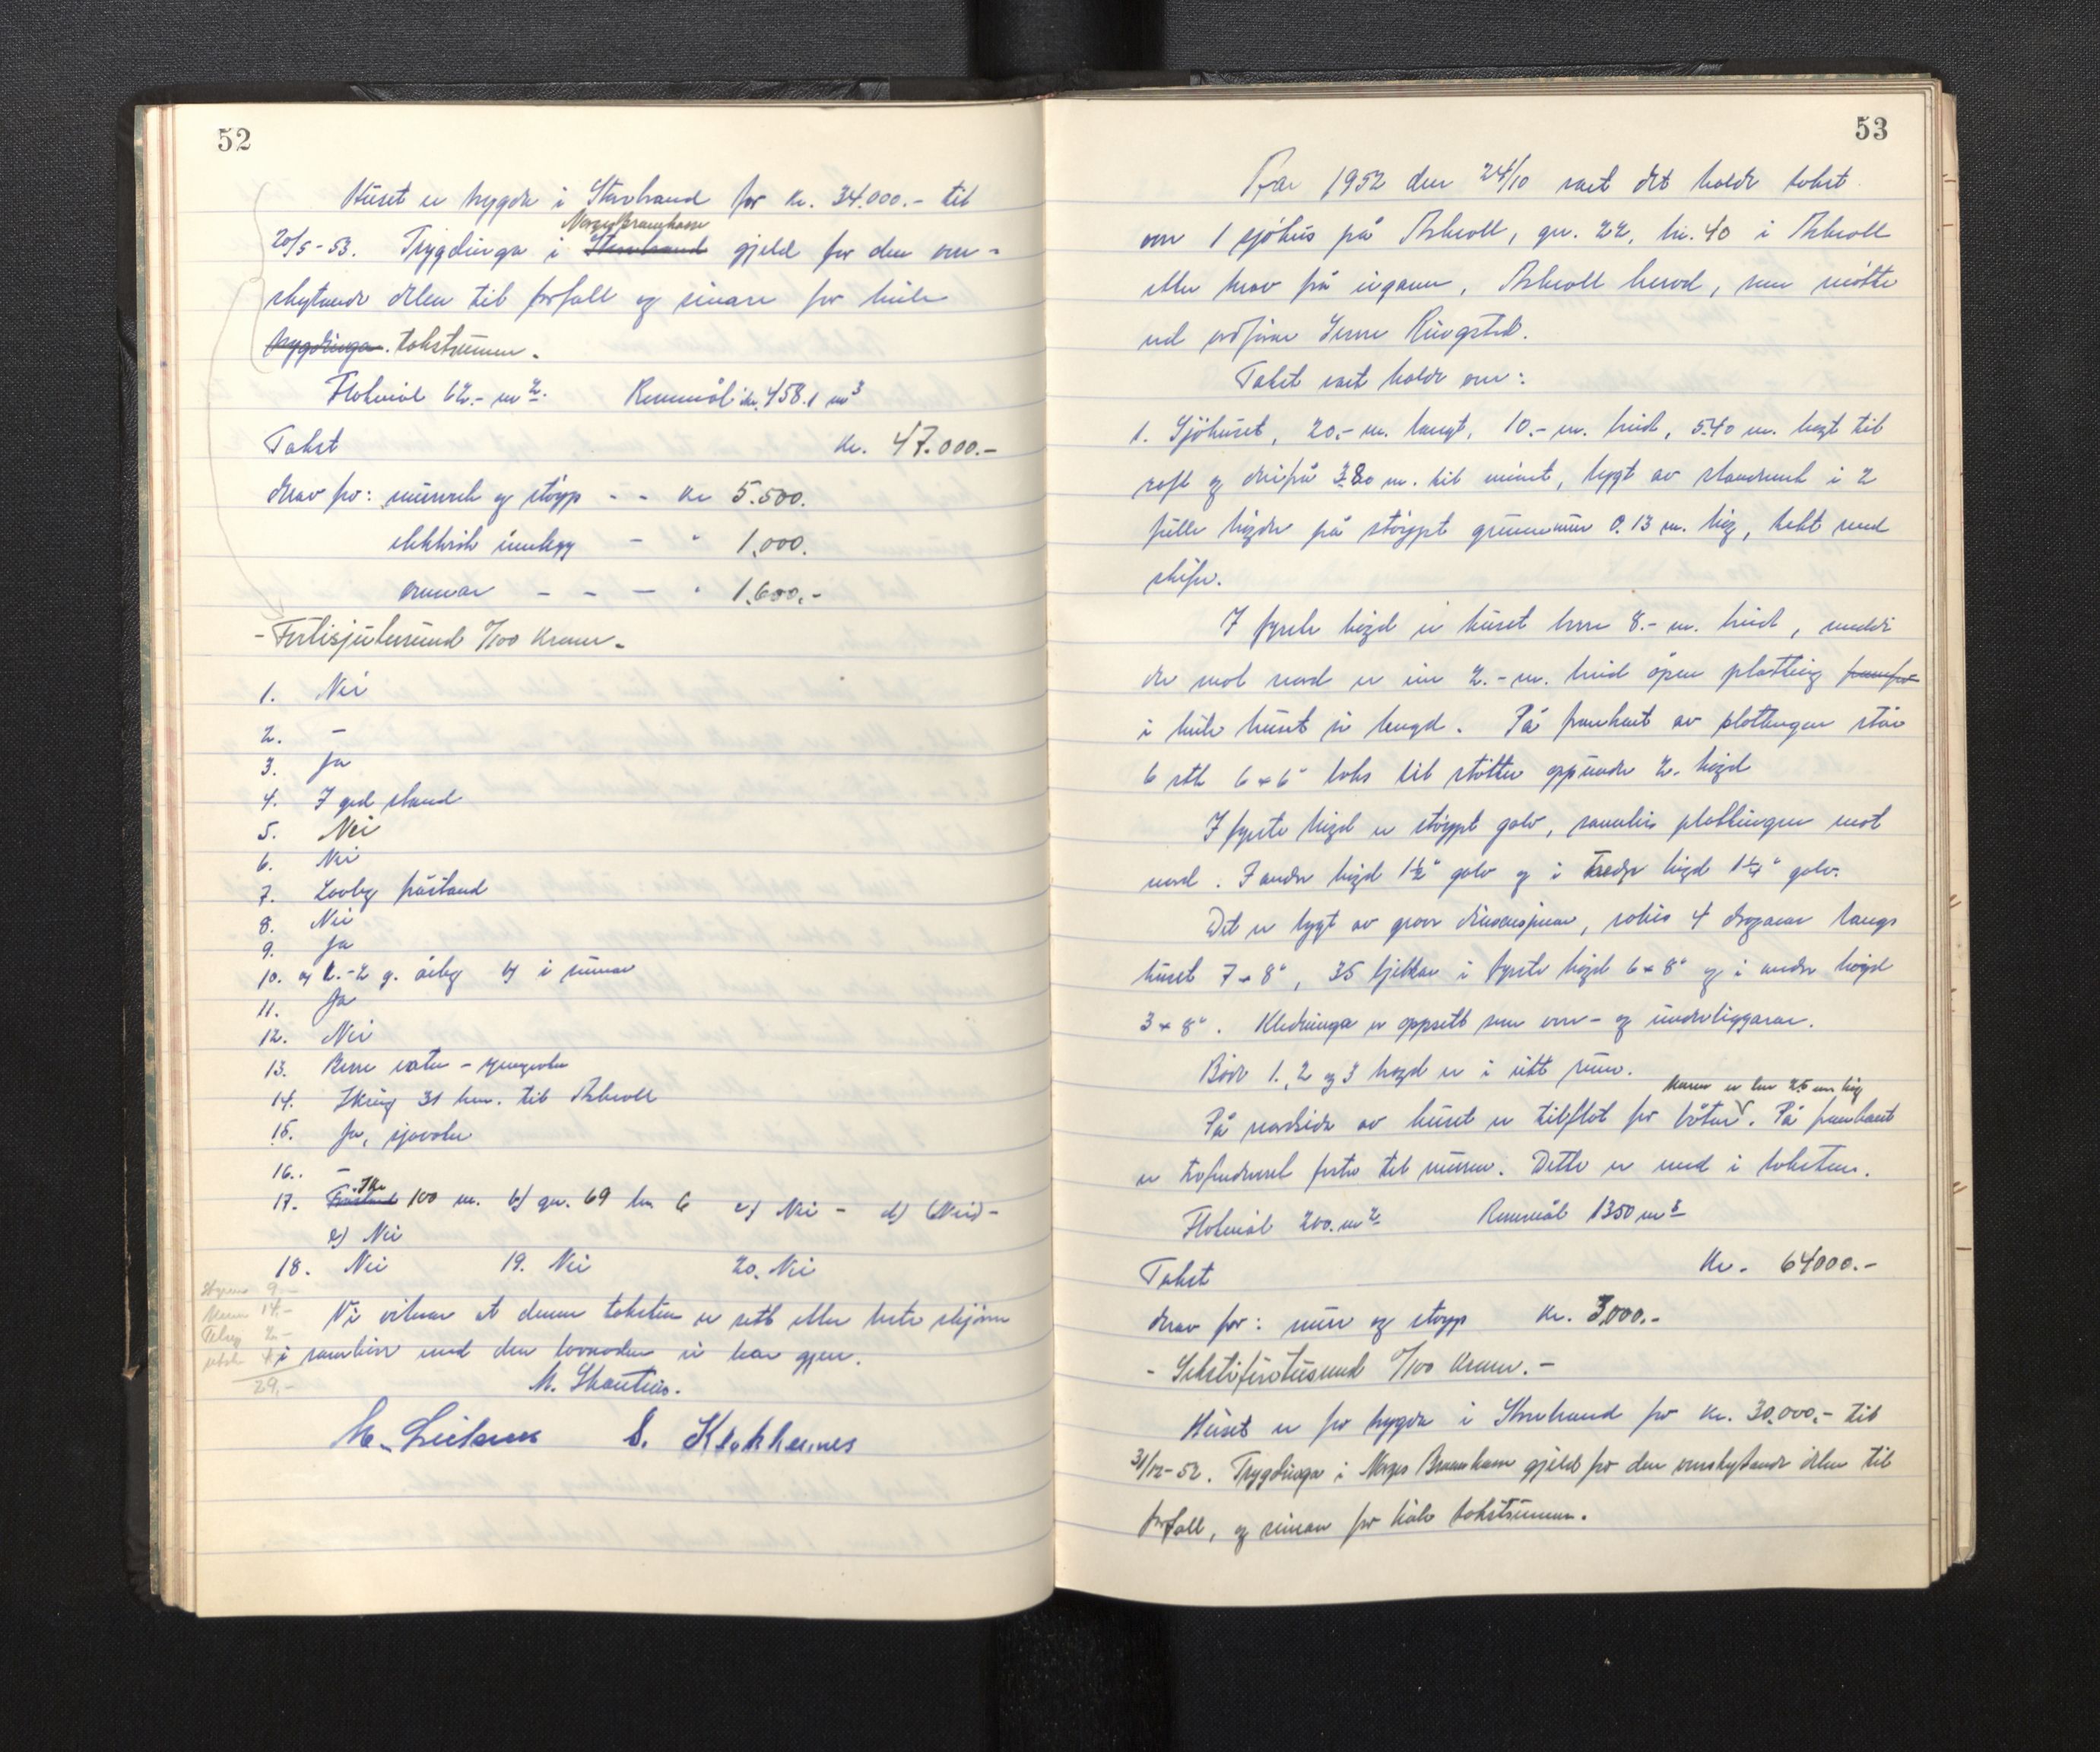 52
Huset er trygda i Storebrand for kr. 34.000.- til
Norges Brannkasse
20/5-53. Trygdinga i Storebrand gjeld for den over-
skytande delen til forfall og sinare for heile
trygdinga. takstsummen.
Flatemål 62.- m². Rommål kr. 458.1 m³
Takst kr. 47.000.-
derav for: murverk og støyp - - kr 5.500.
elektrisk innlegg - " 1.000.
omnar - - - " 1.600.-
- Førtisjutusund 0/100 Kroner -
1. Nei
2. -
3. Ja
4. I god stand
5. Nei
6. Nei
7. Lovleg påstand
8. Nei
9. Ja
10. a) 1.-2 g. årleg b) i
11. Ja
12. Nei
13. Berre vatn -
14. Ikring 31 km. til Askvoll
15. Ja, sjøvatn
16. -
Ik.
17. 100 m. b) gn. 69 bn 6 c) Nei - d) (Nei) -
e) Nei
18. Nei 19. Nei 20. Nei
9 -
14.-
2.-
4
29,-
Vi vitnar at denne taksten er sett etter beste skjønn
i samhøve med den lovnaden vi har gjeve.
M.
M. S. Klokkernes
53
År 1952 den 24/10 vart det halde takst
over 1 sjøhus på Askvoll, gn. 22, bn. 40 i Askvoll
etter krav frå eigaren, Askvoll herad, som møtte
ved ordførar Ringstad.
Takst vart halde over:
1. Sjøhuset, 20,- m. langt, 10.- m. breidt, 5.40 m. høgt til
røst og derifrå 3.80 m. til mønet, bygt av standverk i 2
fulle høgder på støypt grunnmur 0.13 m. høg, tekt med
skifer.
I fyrste høgd er huset berre 8.- m. breidt, medan
der mot nord er ein 2.- m. breid open platting framfor
i heile huset si lengd. På framkant av plattingen står
6 stk 6 x 6" boks til støtte oppunder 2. høgd
I fyrste høgd er støypt golv, samleis plattingen mot
nord. I andre høgd 1½" golv og i tredje høgd 1¼" golv.
Det er bygt av grove dimensjonar, soleis 4 dragarar langs
huset 7 x 8", 35 bjelkar i fyrste høgd 6 x 8" og i andre høgd
3 x 8". Kledninga er oppsett som over- og underliggarar.
Både 1., 2 og 3 høgd er i eitt rom.
muren er her 2.5 m høg
På nordsida av huset er tilflot for båtar. På framkant
er trefenderverk feste til muren. Dette er med i taksten.
Flatemål 200. m² Rommål 1350 m³
Takst Kr. 64000.-
derav for: mur og støyp kr. 3.000.-
- Sekstifiretusund 0/100 Kroner. -
Huset er for trygda i Storebrand for kr. 30.000,- til
31/12-52. Trygdinga i Norges Brannkasse gjeld for den overskytande delen til
forfall, og sinare for heile takstsummen.